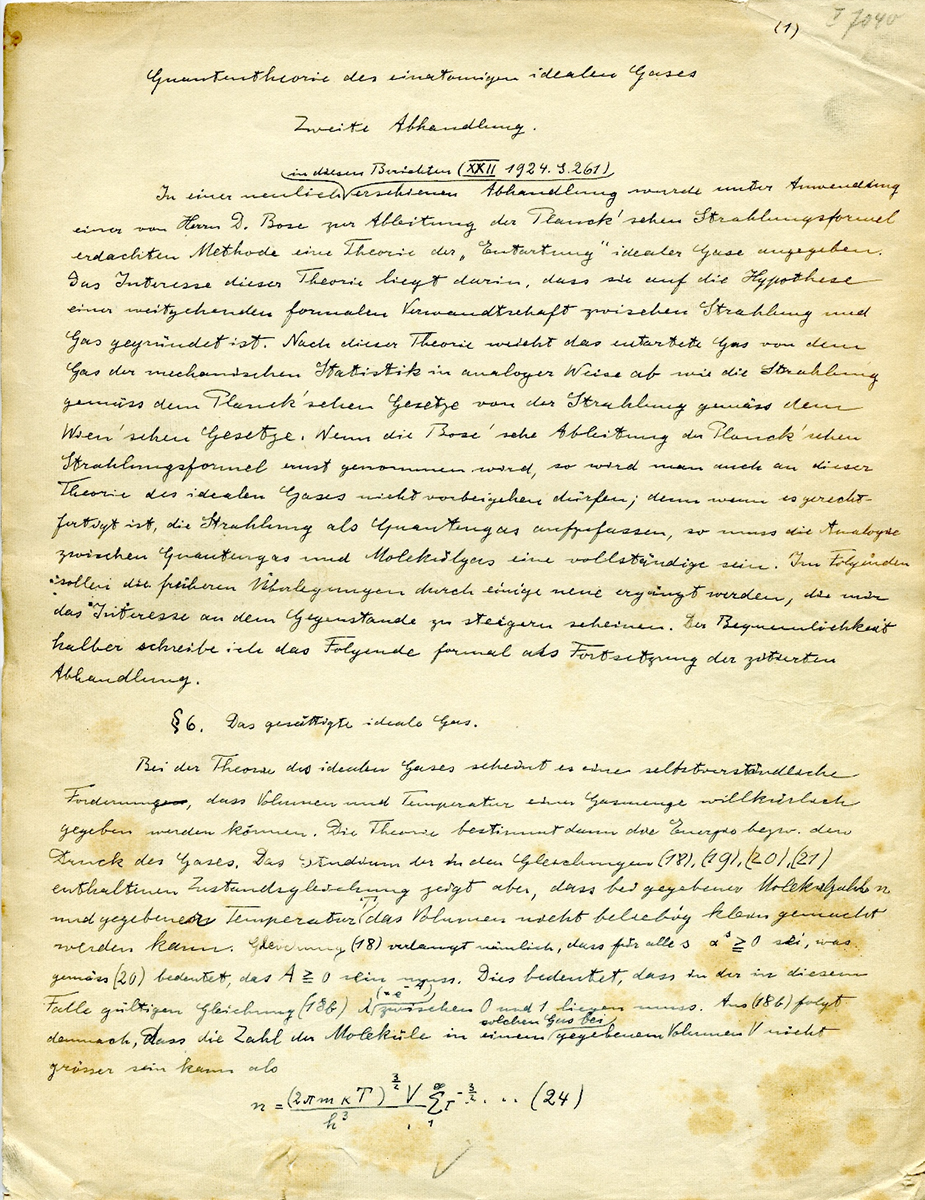 (1) I 7040
Quantentheorie des einatomigen idealen Gases
Zweite Abhandlung.
in diesen Berichten (XXII 1924. S. 261)
In einer neulich erschienen Abhandlung wurde unter Anwendung
einer von Herrn D. Bose zur Ableitung der Planck'schen Strahlungsformel
erdachten Methode eine Theorie der „Entartung" idealer Gase angegeben.
Das Interesse dieser Theorie liegt darin, dass sie auf die Hypothese
einer weitgehenden formalen Verwandtschaft zwischen Strahlung und
Gas gegründet ist. Nach dieser Theorie weicht das entartete Gas von dem
Gas der mechanischen Statistik in analoger Weise ab wie die Strahlung
gemäss dem Planck'schen Gesetze von der Strahlung gemäss dem
Wien'schen Gesetze. Wenn die Bose'sche Ableitung der Planck'schen
Strahlungsformel ernst genommen wird, so wird man auch an dieser
Theorie des idealen Gases nicht vorbeigehen dürfen; denn wenn es gerecht-
fertigt ist, die Strahlung als Quantengas aufzufassen, so muss die Analogie
zwischen Quantengas und Molekülgas eine vollständige sein. Im Folgenden
sollen die früheren Überlegungen durch einige neue ergänzt werden, die mir
das Interesse an dem Gegenstande zu steigern scheinen. Der Bequemlichkeit
halber schreibe ich das Folgende formal als Fortsetzung der zitierten
Abhandlung.
§6. Das gesättigte ideale Gas.
Bei der Theorie des idealen Gases scheint es eine selbstverständliche
Forderung, dass Volumen und Temperatur einer Gasmenge willkürlich
gegeben werden können. Die Theorie bestimmt dann die Energie bezw. den
Druck des Gases. Das Studium der in den Gleichungen (18), (19), (20), (21)
enthaltenen Zustandsgleichung zeigt aber, dass bei gegebener Molekülzahl n
und gegebener Temperatur T das Volumen nicht beliebig klein gemacht
werden kann. Gleichung (18) verlangt nämlich, dass für alle s αˢ ≧ 0 sei, was
gemäss (20) bedeutet, das A ≧ 0 sein muss. Dies bedeutet, dass in der in diesem
Falle gültigen Gleichung (18b) λ (= e⁻ᴬ) zwischen 0 und 1 liegen muss. Aus (18b) folgt
solchen Gas bei
demnach, dass die Zahl der Moleküle in einem gegebenem Volumen V nicht
grösser sein kann als
n = (2πmκT)^{3/2} V / h³ ∑_1^∞ τ^{-3/2} . . . (24)